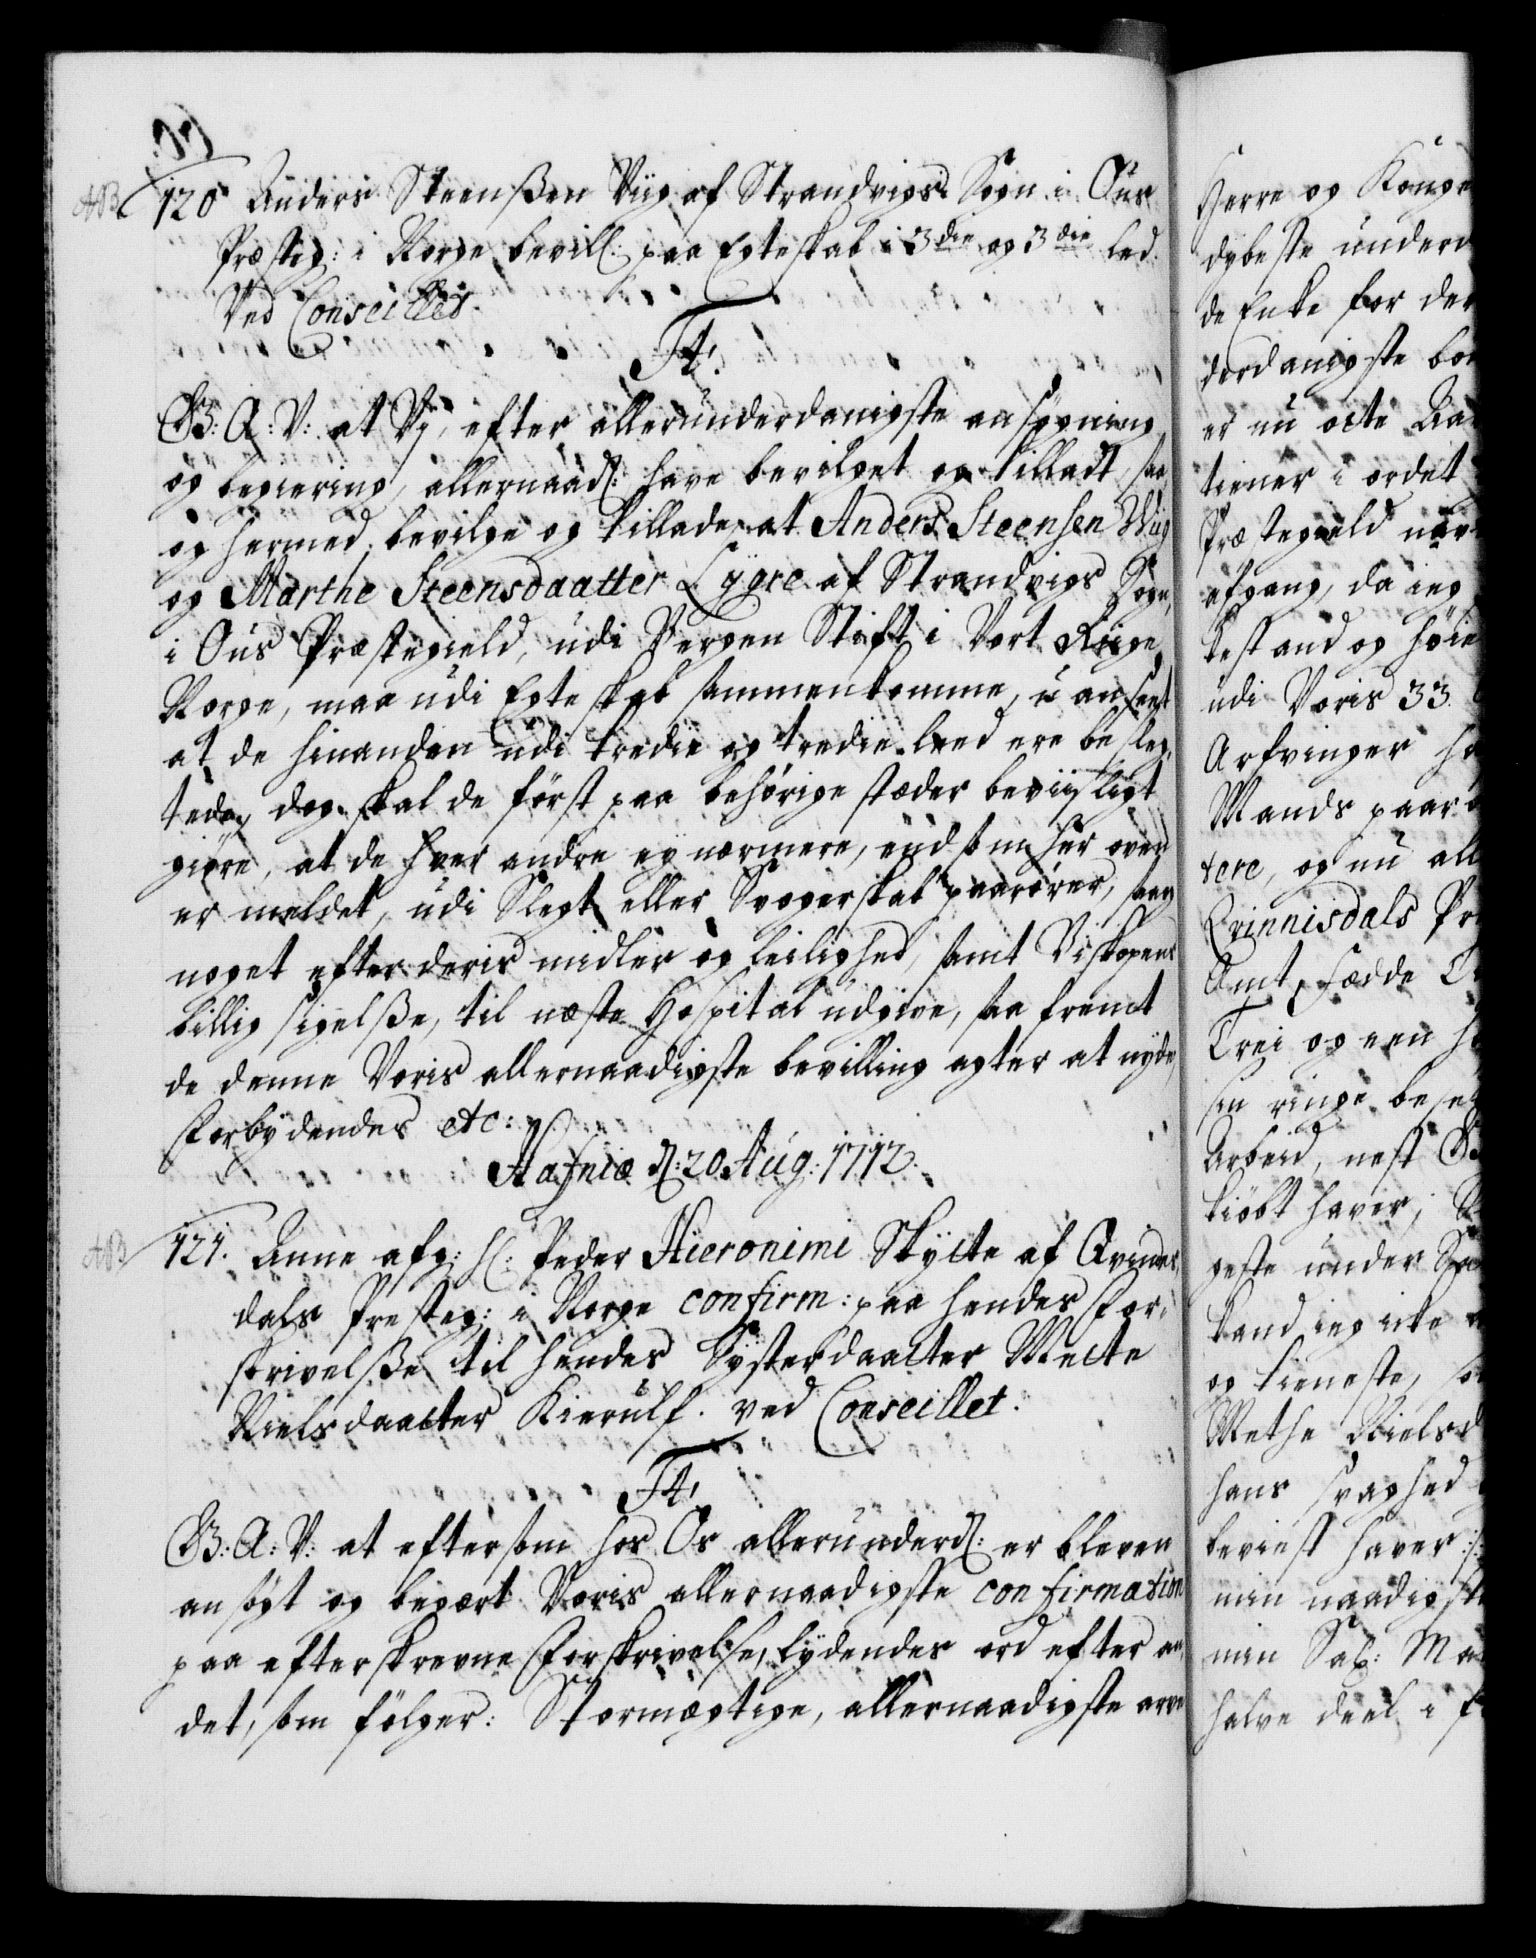 AB
120 Anders Steenßen Vig af Strandvigs Sogn i Ous
Præsteg: i Norge bevill: paa Egteskab i 3die og 3die Led.
Ved Conseillet.
F 4.
G: A: V: at Vj, efter allerunderdanigste ansøgning
og begiering, allernaadl: have bevilget og tilladt, saa
og hermed bevilge og tillade, at Anders Steensen Wiig
og Marthe Steensdaatter Lygre af Strandvigs Sogn,
i Ous Præstegield, udi Bergen Stift i Vort Riige
Norge, maa udi Egteskab sammenkomme, uanseet
at de hinanden udi tredie og tredie Leed ere besleg,
tede, dog skal de først paa behørige stæder beviisligt
giøre, at de hver andre ey nærmere, end som her oven
er meldet, udi Slegt eller Svogerskab paarører, saa og
noget efter deris midler og leilighed, samt Biskopens
billig sigelße, til næste Hospital udgive, saa fremt
de denne Voris allernaadigste bevilling agter at nyde,
Forbydendes etc:
Hafniæ d: 20 Aug: 1712.
AB
121. Anne afg: Sl: Peder Hieronimi Skytte af Qvines,
dals Presteg: i Norge confirm: paa hendes For,
skrivelße til hendes Systerdaatter Mette
Nielsdaatter Kierulf. ved Conseillet.
F 4.
G: A: V: at eftersom hos Os allerunderdl: er bleven
ansøgt og begært Voris allernaadigste confirmation
paa efterskrevne Forskrivelse, lydendes ord efter an,
det, som følger: Stormægtige, allernaadigste arve
Herre og Konge
dybeste underd
de Enke for der
derdanigste bon
er nu otte Aar
tiener i ordet
Præstegield
afgang, da ieg
bestand og høie
udi Voris 33.
Arfvinger
Mands paar
tere, og nu all
Qvinnisdals Pr
Amt, fødde
Trei og een
sin ringe
Arbeid, nest G
kiøbt haver,
peste under
kand ieg icke
og tieneste, so
Methe Nielsd
hans svaghed
beviist haver
min naadigste
min Sal: Ma
halve deel i